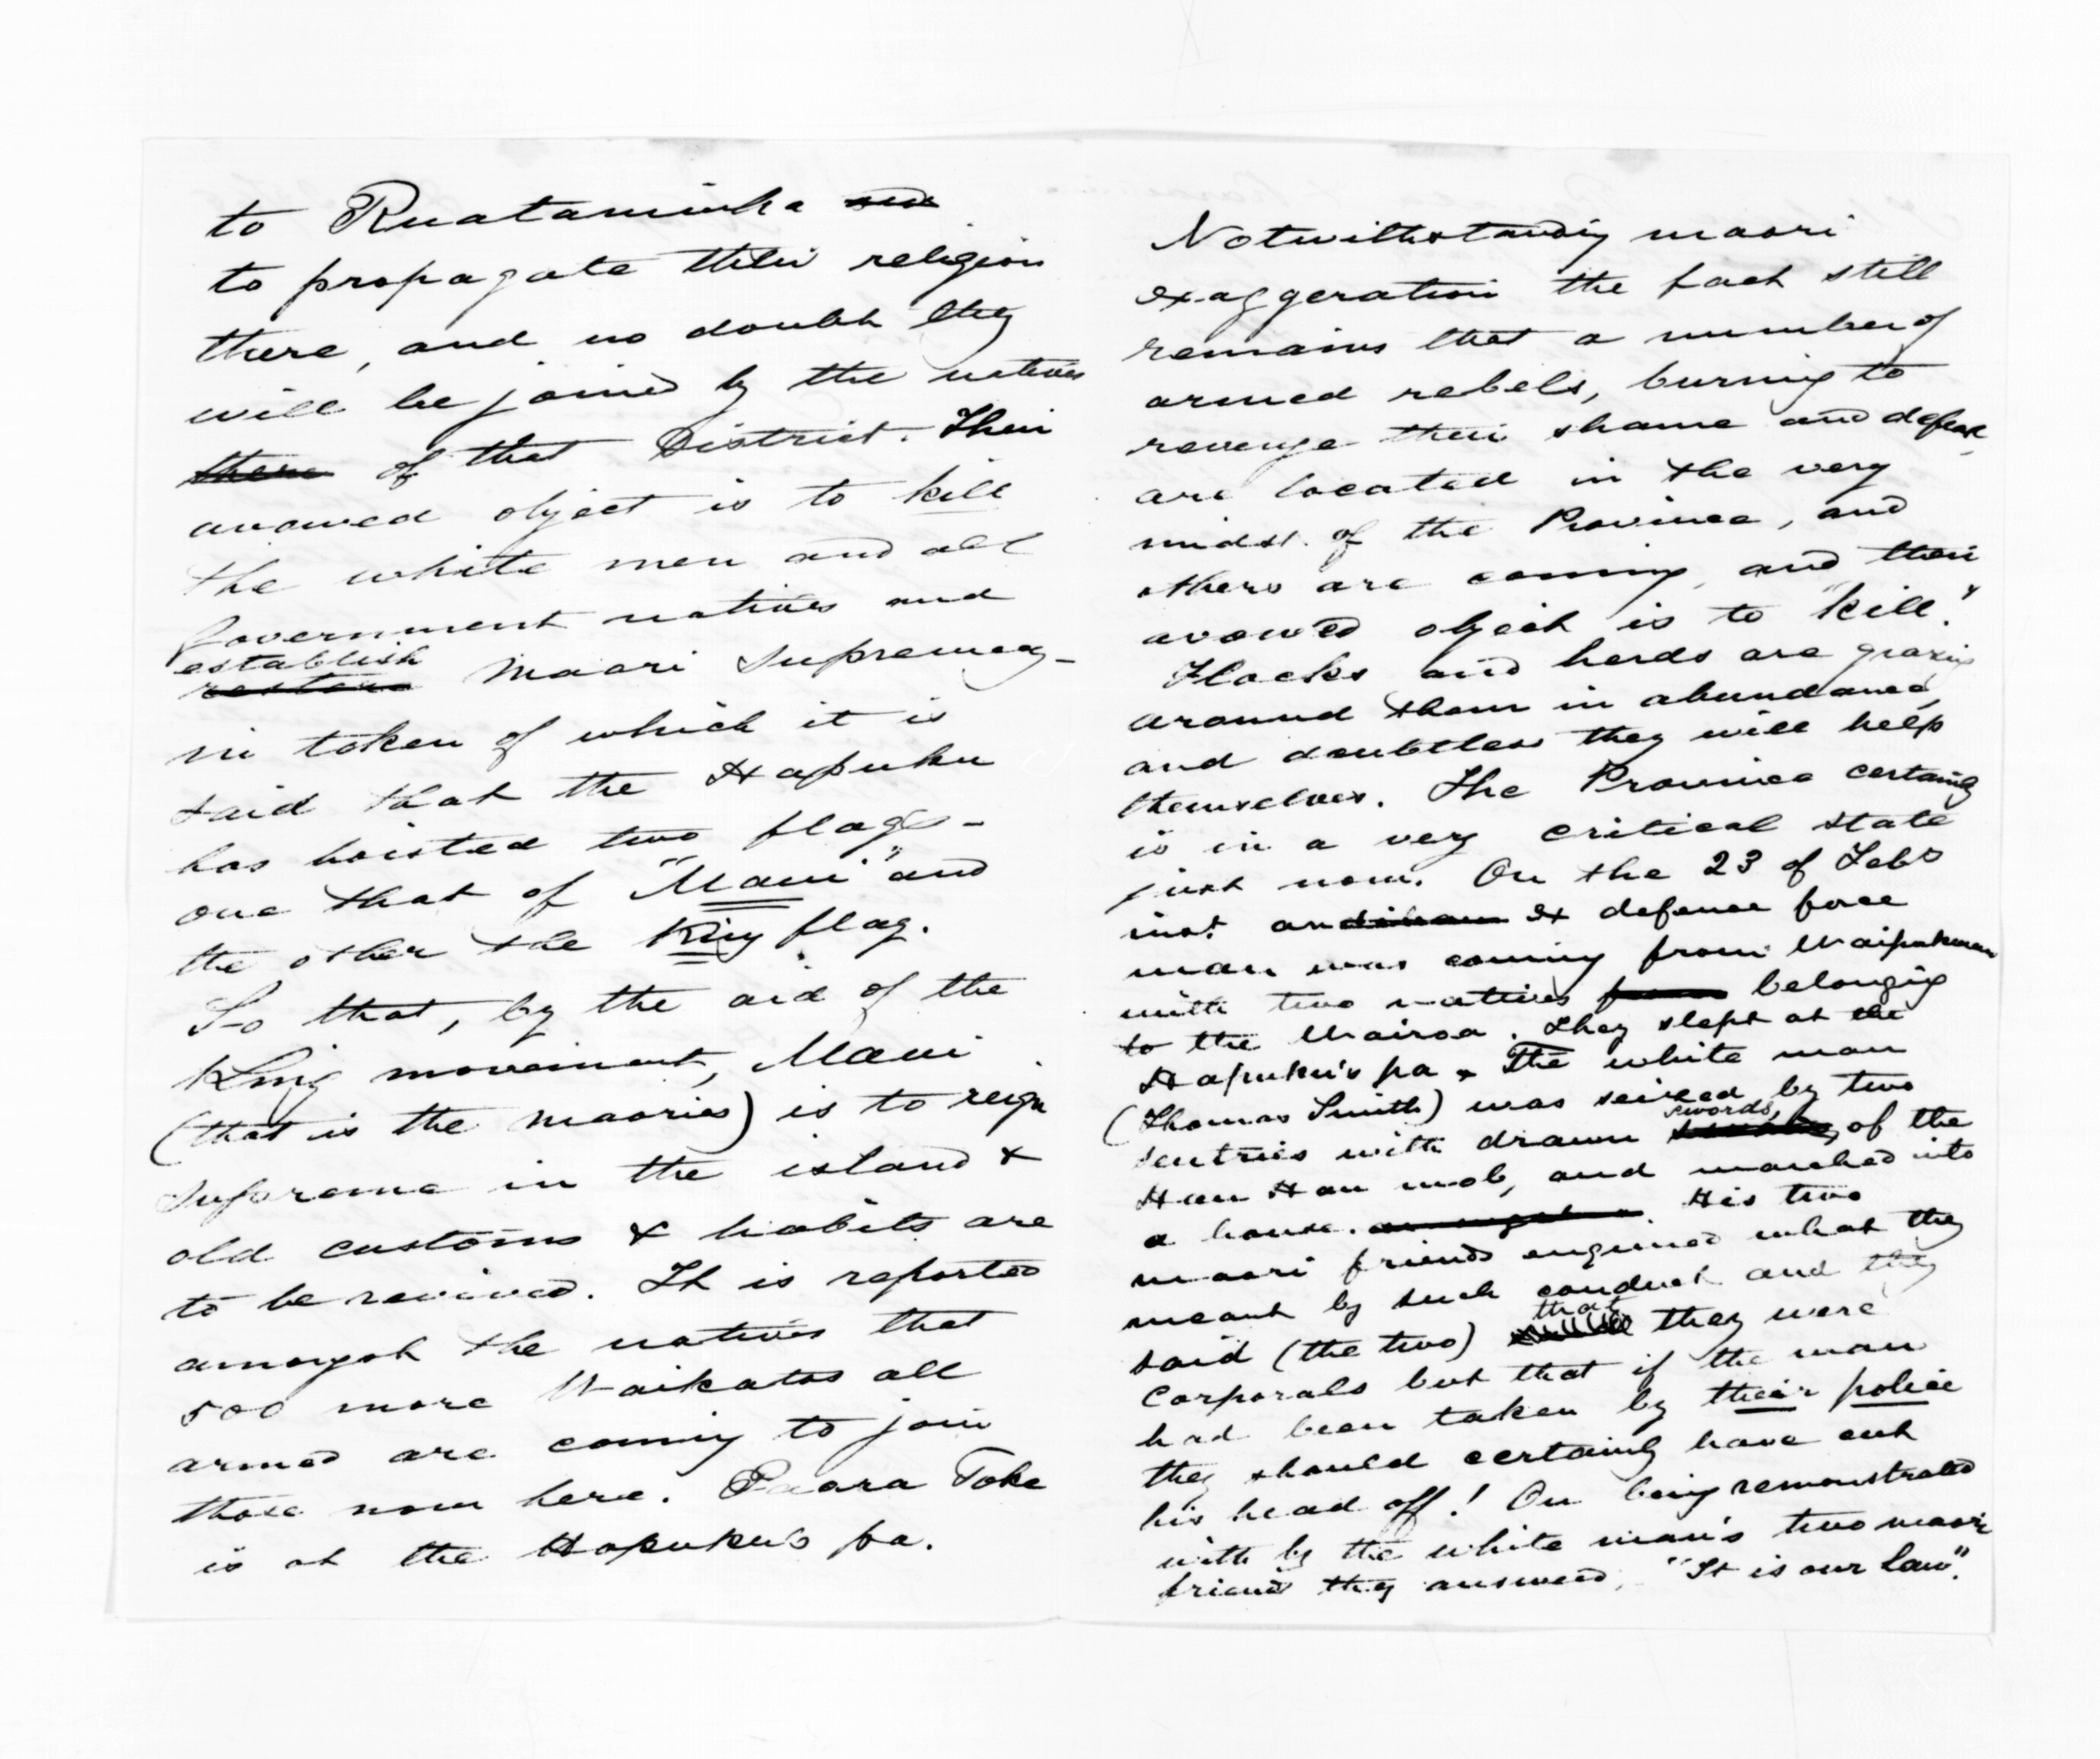 to Ruataniwha
to propagate their religion
there, and no doubt they
will be joined by the natives
there of that District. Their
avowed object is to kill
the white men and all
Government natives and
establish
restore Maori Supremacy-
in token of which it is
said that the Hapuku
has hoisted two flags-
one that of "Maui" and
the other the King flag.
So that, by the aid of the
King movement, Maui
(that is the maories) is to reign
supreme in the island &
old customs & habits are
to be revived. It is reported
amongst the natives that
500 more Waikatos all
armed are coming to join
those now here. Paora Toke
is at the Hapuku's pa.
Notwithstanding maori
exaggeration the fact still
remains that a number of
armed rebels, burning to
revenge their shame and defeat,
are located in the very
midst of the Province, and
others are coming, and their
avowed object is to "kill."
Flocks and herds are grazing
around them in abundance,
and doubtless they will help
themselves. The Province certainly
is in a very critical state
just now. On the 23 of Feby
inst an ex defence force
man was coming from Waipukurau
with two natives from belonging
to the Wairoa. They slept at the
Hapuku's pa. The white man
(Thomas Smith) was seized by two
swords,
sentries with drawn of the
Hau Hau mob, and marched into
a house. His two
maori friends enquired what they
meant by such conduct and they
that
said (the two) they were
Corporals but that if the man
had been taken by their police
they should certainly have cut
his head off! On being remonstrated
with by the white man's two maori
friends they answered, "It is our law".